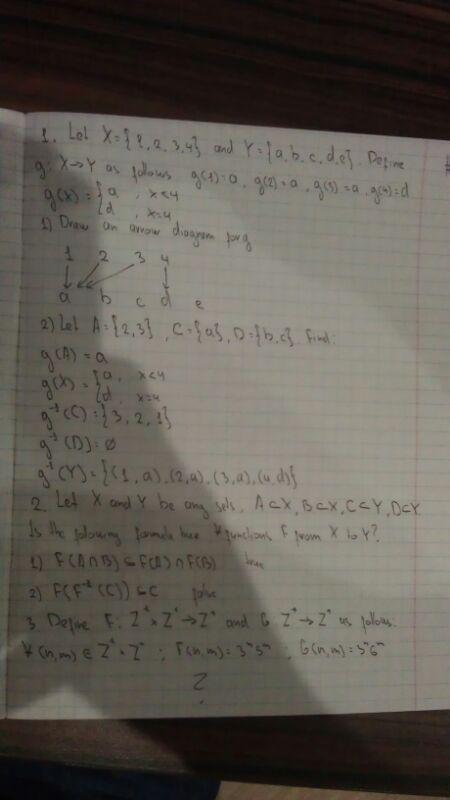 1. Let X={1,2,3,4} and Y={a,b,c,d,e}. Define
g: X→Y as follows g(1)=a, g(2)=a, g(3)=a, g(4)=d
g(x)={a, x<4
{d, x=4
1) Draw an arrow diagram for g
1 2 3 4
a b c d e
2) Let A={2,3}, C={a}, D={b,c}. Find:
g(A)=a
g(X)={a, x<4
{d, x=4
g⁻¹(C)={3,2,1}
g⁻¹(D)=∅
g⁻¹(Y)={(1,a),(2,a),(3,a),(4,d)}
2. Let X and Y be any sets, A⊂X, B⊂X, C⊂Y, D⊂Y.
Is the following formula true ∀ functions F from X to Y?
1) F(A∩B)⊆F(A)∩F(B) true
2) F(F⁻¹(C))⊆C false
3. Define F: Z⁺×Z⁺→Z⁺ and G Z⁺→Z⁺ as follows:
∀(n,m)∈Z⁺×Z⁺; F(n,m)=3ⁿ5ᵐ; G(n,m)=3ⁿ6ᵐ
?